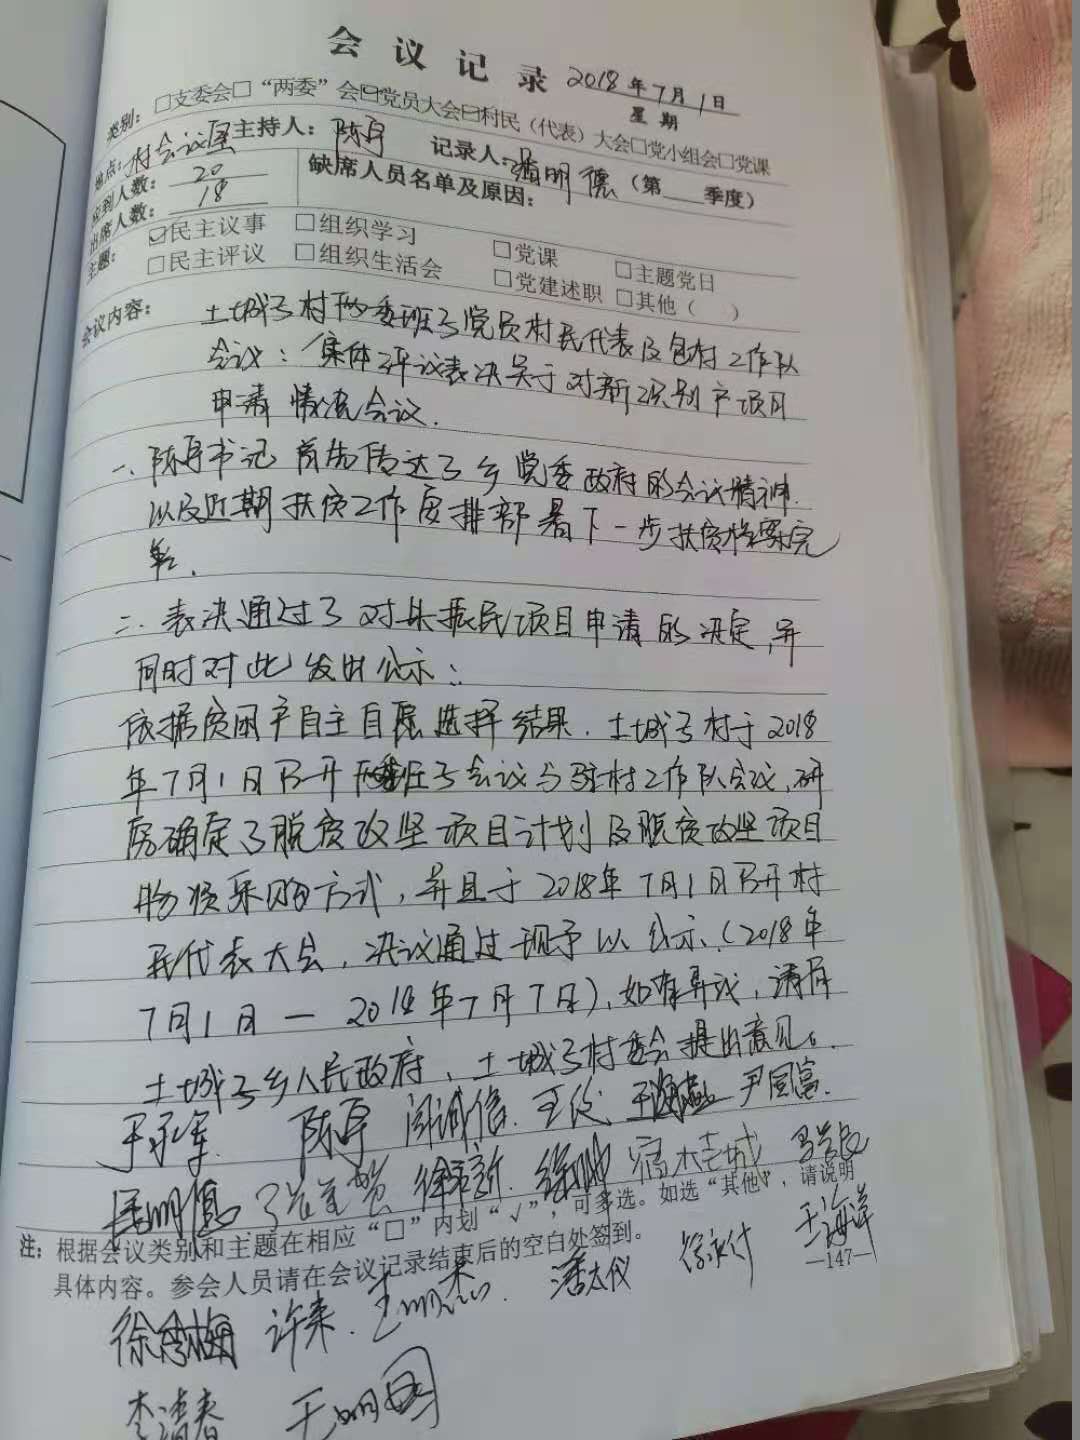 会议记录 2018年7月1日
星期
类别：□支委会□“两委”会☑党员大会☑村民（代表）大会□党小组会□党课
地点：村会议室 主持人：陈 记录人：明德（第 季度）
应到人数：20 缺席人员名单及原因：
出席人数：18
主题：☑民主议事 □组织学习 □党课 □主题党日
□民主评议 □组织生活会 □党建述职 □其他（ ）
会议内容：土城子村两委班子党员村民代表及包村工作队
会议：集体评议表决关于对新识别户项目
申请情况会议.
一、陈书记首先传达了乡党委政府的会议精神.
以及近期扶贫工作安排部署下一步扶贫档案完
善.
二.表决通过了对朱振民项目申请的决定,并
同时对此发出公示：
依据贫困户自主自愿选择结果.土城子村于2018
年7月1日召开两委班子会议与驻村工作队会议,研
究确定了脱贫攻坚项目计划及脱贫攻坚项目
物资采购方式,并且于2018年7月1日召开村
民代表大会,决议通过现予以公示、(2018年
7月1日—2018年7月7日),如有异议,请向
土城子乡人民政府、土城子村委会提出意见。
陈 闫诚信 王 尹国富
马 徐
注：根据会议类别和主题在相应“□”内划“√”，可多选。如选“其他”，请说明
具体内容。参会人员请在会议记录结束后的空白处签到。
徐永付 王海洋
—147—
徐 梅 许来 王明杰 潘太仪
李清春 王明国